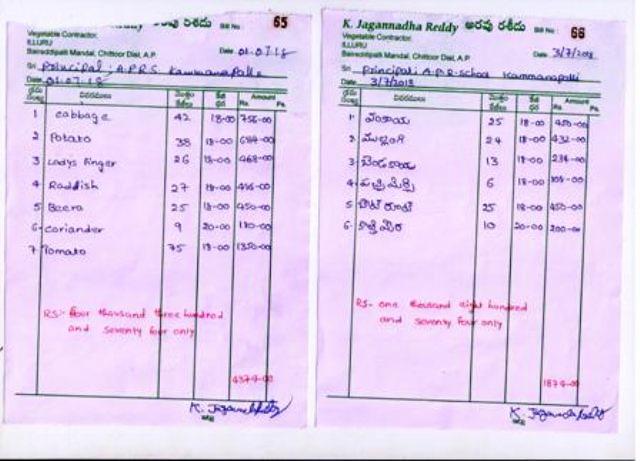 అరువు రశీదు Bill No: 65
Vegetable Contractor.
ILLURU
Baireddipalli Mandal, Chittoor Dist, A.P. Date 01.07.18
Sri Principal: A.P.R.S. Kammanapalle
Date 01.07.18
Amount
Rs. Ps.
1 cabbage 42 18-00 756-00
2 Potato 38 18-00 684-00
3 Lady's finger 26 18-00 468-00
4 Raddish 27 18-00
5 Beera 25 18-00 450-00
6 coriander 9 20-00 180-00
7 Tomato 75 18-00 1350-00
RS:- four thousand three hundred
and seventy four only
K. Jagannadha Reddy అరువు రశీదు Bill No: 66
Vegetable Contractor.
ILLURU
Baireddipalli Mandal, Chittoor Dist, A.P. Date 3/7/2018
Sri Principal: A.P.R-school Kammanapalli
3/7/2018
Amount
Rs. Ps.
1 వంకాయ 25 18-00 450-00
2 ముల్లంగి 24 18-00 432-00
3 బెండకాయ 13 18-00 234-00
4 పచ్చి మిర్చి 6 18-00 108-00
5 25 18-00 450-00
6 10 20-00 200-00
RS- one thousand eight hundred
and seventy four only
1874-00